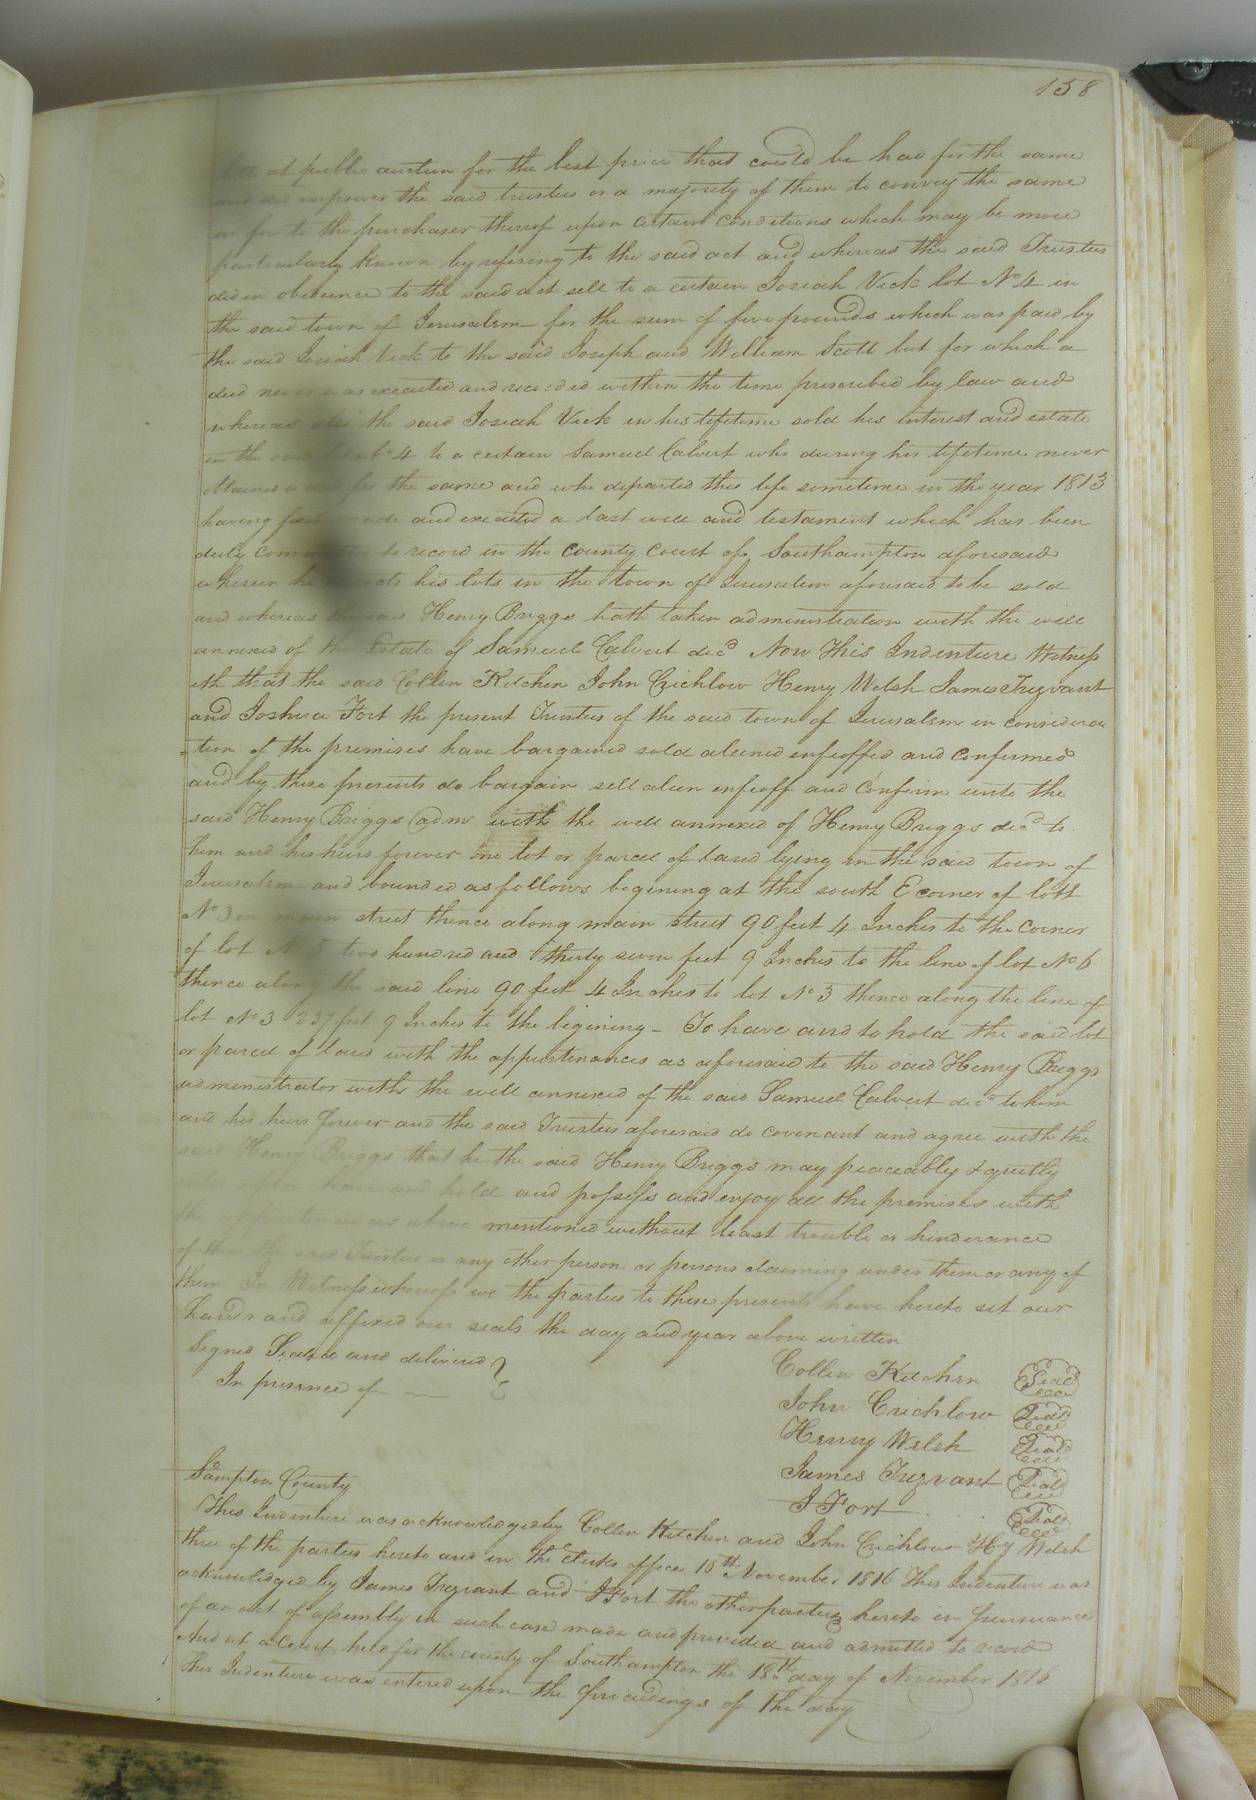 158
lots at public auction for the best price that could be had for the same
and did empower the said trustees or a majority of them to convey the same
in fee to the purchaser thereof upon certain conditions which may be more
particularly known by refering to the said act and whereas the said Trustees
did in obedience to the said act sell to a certain Josiah Vick lot No 4 in
the said town of Jerusalem for the sum of five pounds which was paid by
the said Josiah Vick to the said Joseph and William Scott but for which a
deed never was executed and recorded within the time prescribed by law and
whereas also the said Josiah Vick in his lifetime sold his interest and estate
in the said lot No 4 to a certain Samuel Calvert who during his lifetime never
obtained a deed for the same and who departed this life sometime in the year 1813
having first made and executed a last will and testament which has been
duly committed to record in the county court of Southampton aforesaid
wherein he directs his lots in the town of Jerusalem aforesaid to be sold
and whereas the said Henry Briggs hath taken administration with the will
annexed of the Estate of Samuel Calvert decd Now This Indenture Witness
eth that the said Collen Kitchen John Crichlow Henry Welsh James Trezvant
and Joshua Fort the present Trustees of the said town of Jerusalem in considera
tion of the premises have bargained sold aliened enfeoffed and confirmed
and by these presents do bargain sell alien enfeoff and Confirm unto the
said Henry Briggs adm with the will annexed of Henry Briggs decd to
him and his heirs forever one lot or parcel of land lying in the said town of
Jerusalem and bounded as follows begining at the south E corner of lott
No 3 on main street thence along main street 90 feet 4 Inches to the corner
of lot No 5 two hundred and thirty seven feet 9 Inches to the line of lot No 6
thence along the said line 90 feet 4 Inches to lot No 3 thence along the line of
lot No 3 237 feet 9 Inches to the bigining - To have and to hold the said lot
or parcel of land with the appurtenances as aforesaid to the said Henry Briggs
administrator with the will annexed of the said Samuel Calvert decd to him
and his heirs forever and the said Trustees aforesaid do covenant and agree with the
said Henry Briggs that he the said Henry Briggs may peaceably & quietly
have and hold and possess and enjoy all the premises with
the appurtenances above mentioned without least trouble or hinderance
of them the said Trustees or any other person or persons claiming under them or any of
them In Witness whereof we the parties to these presents have hereto set our
hands and affixed our seals the day and year above written
Signed Sealed and delivered
In presence of
Collen Kitchen Seal
John Crichlow Seal
Henry Welsh Seal
James Trezvant Seal
J Fort Seal
Sampton County
This Indenture was acknowledged by Collen Kitchen and John Crichlow Hy Welsh
three of the parties hereto and in the Clerks office 18th November 1816 This Indenture was
acknowledged by James Trezvant and J Fort the other parties hereto in pursuance
of an act of assembly in such case made and provided and admitted to record
And at a Court held for the county of Southampton the 18th day of November 1816
This Indenture was entered upon the proceedings of the day